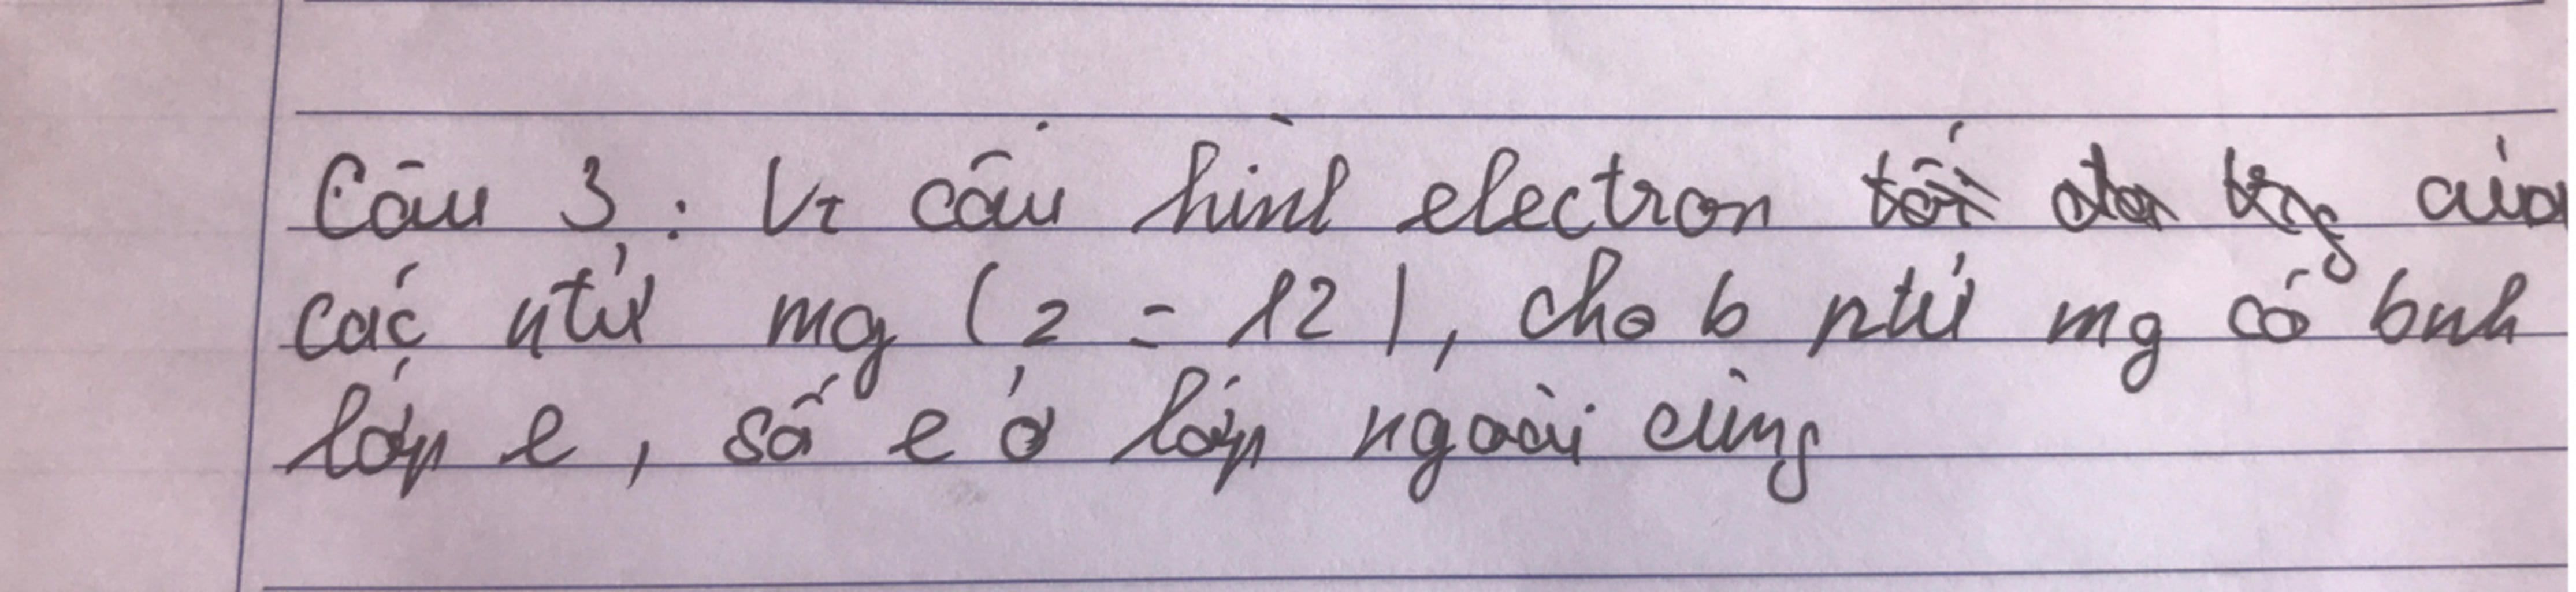 Câu 3 : Vt cấu hình electron của
các ntử mg (z = 12), cho b ntử mg có bnh
lớp e, số e ở lớp ngoài cùng